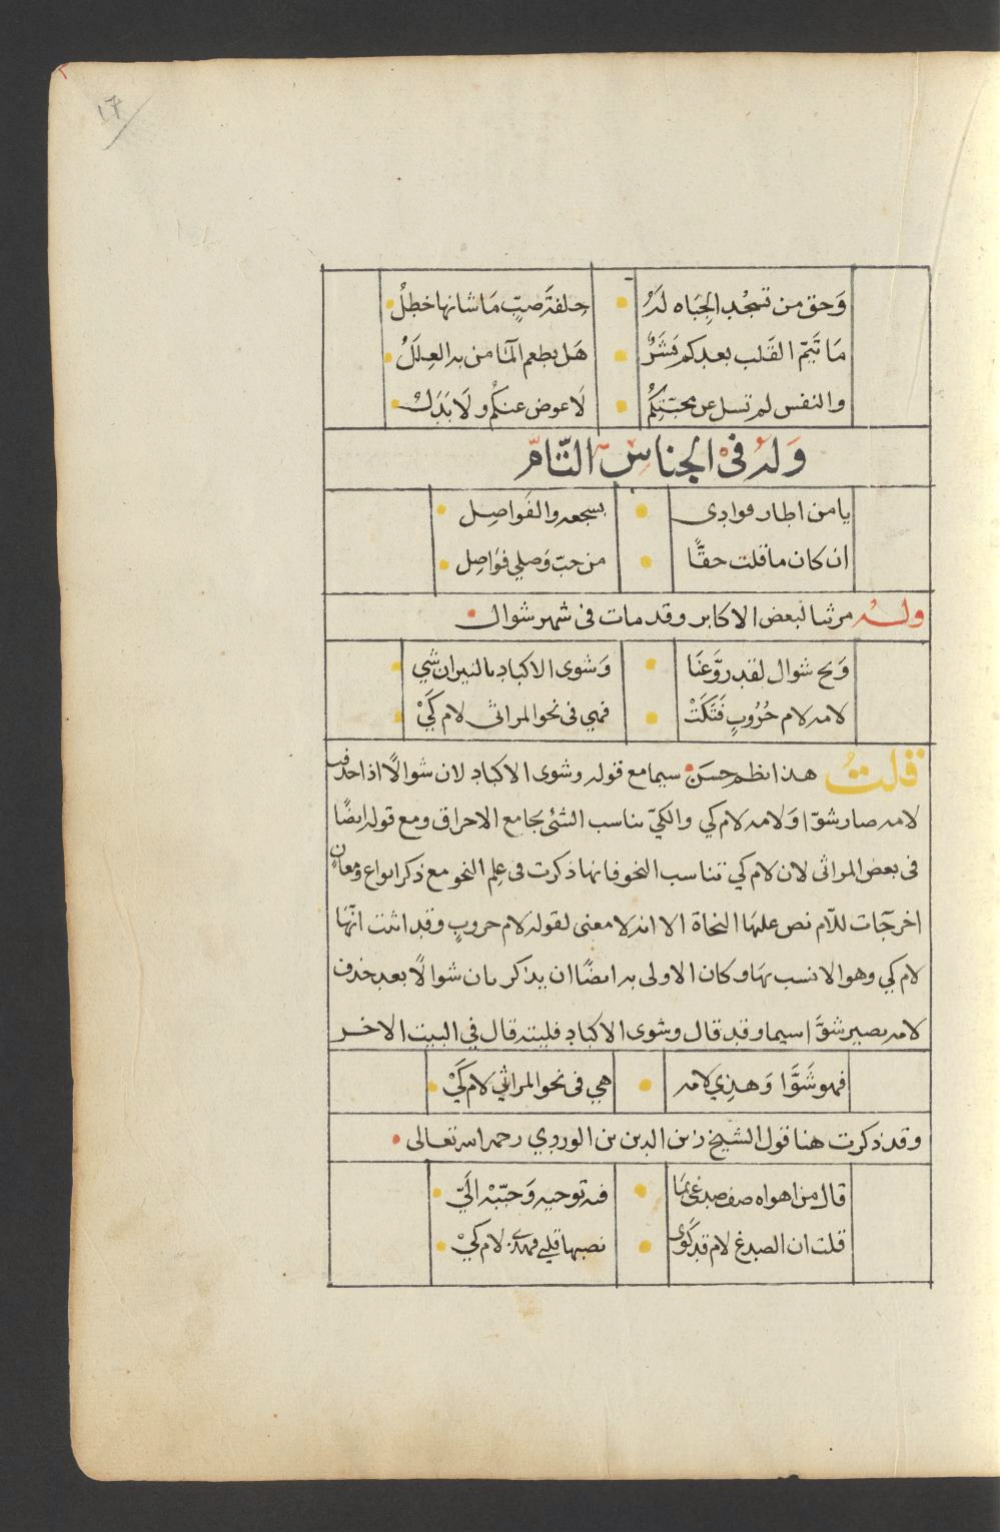 ١٦
وَحق من تسجُد الجِبَاه لهُ حلفةَ صبٍّ مَا شانها خطلُ
مَا تَيَّم القَلب بعدكم بَشَرٌ هَل يطعم المَا من به العِلَلُ
والنفس لم تسل عن محبّتكُم لَا عوض عنكُم ولَا بَدَلُ
وَلهُ فِى الجناسِ التّامّ
يا من اطار فوادى بسجعه والفَواصِل
ان كان ما قلت حقًّا من حبّ وَصلي فوَاصِل
ولهُ مرثيا لبعض الاكابر وقد مات فى شهر شوال
وَيح شوال لقد روَّعنَا وَشوى الاكباد بالنيران شَي
لامه لام حُرُوبٍ فَتَكَتْ فهي فى نحو المراثى لام كَيْ
قلتُ هذا نظم حسَن سيما مع قوله وشوى الاكباد لان شوالًا اذا حذفت
لامه صار شوّا وَلامه لام كي والكيّ يناسب الشئ بجامع الاحراق ومع قوله ايضًا
فى بعض المراثى لان لام كي تناسب النحو فانها ذكرت فى علم النحو مع ذكر انواع ومعانٍ
اخر جَآت للّام نص عليهَا النحاة الا انه لا معنى لقوله لام حروبٍ وقد اثبت انّهَا
لام كي وهو الانسب بهَا وكان الاولى به ايضًا ان يذكر بان شوالًا بعد حذف
لامه يصير شوَّا سيما وقد قال وشوى الاكباد فليته قال في البيت الاخر
فهو شَوَّا وَهذِي لامه هي فى نحو المراثي لام كَيْ
وقد ذكرت هنا قول الشيخ زين الدين بن الوردي رحمه الله تعالى
قال من اهواه صف صدغى بمَا فيه توجيه وَحبّبْه الَيّ
قلت ان الصدغ لام قد كَوى نصبها قلبي فهذى لام كيْ